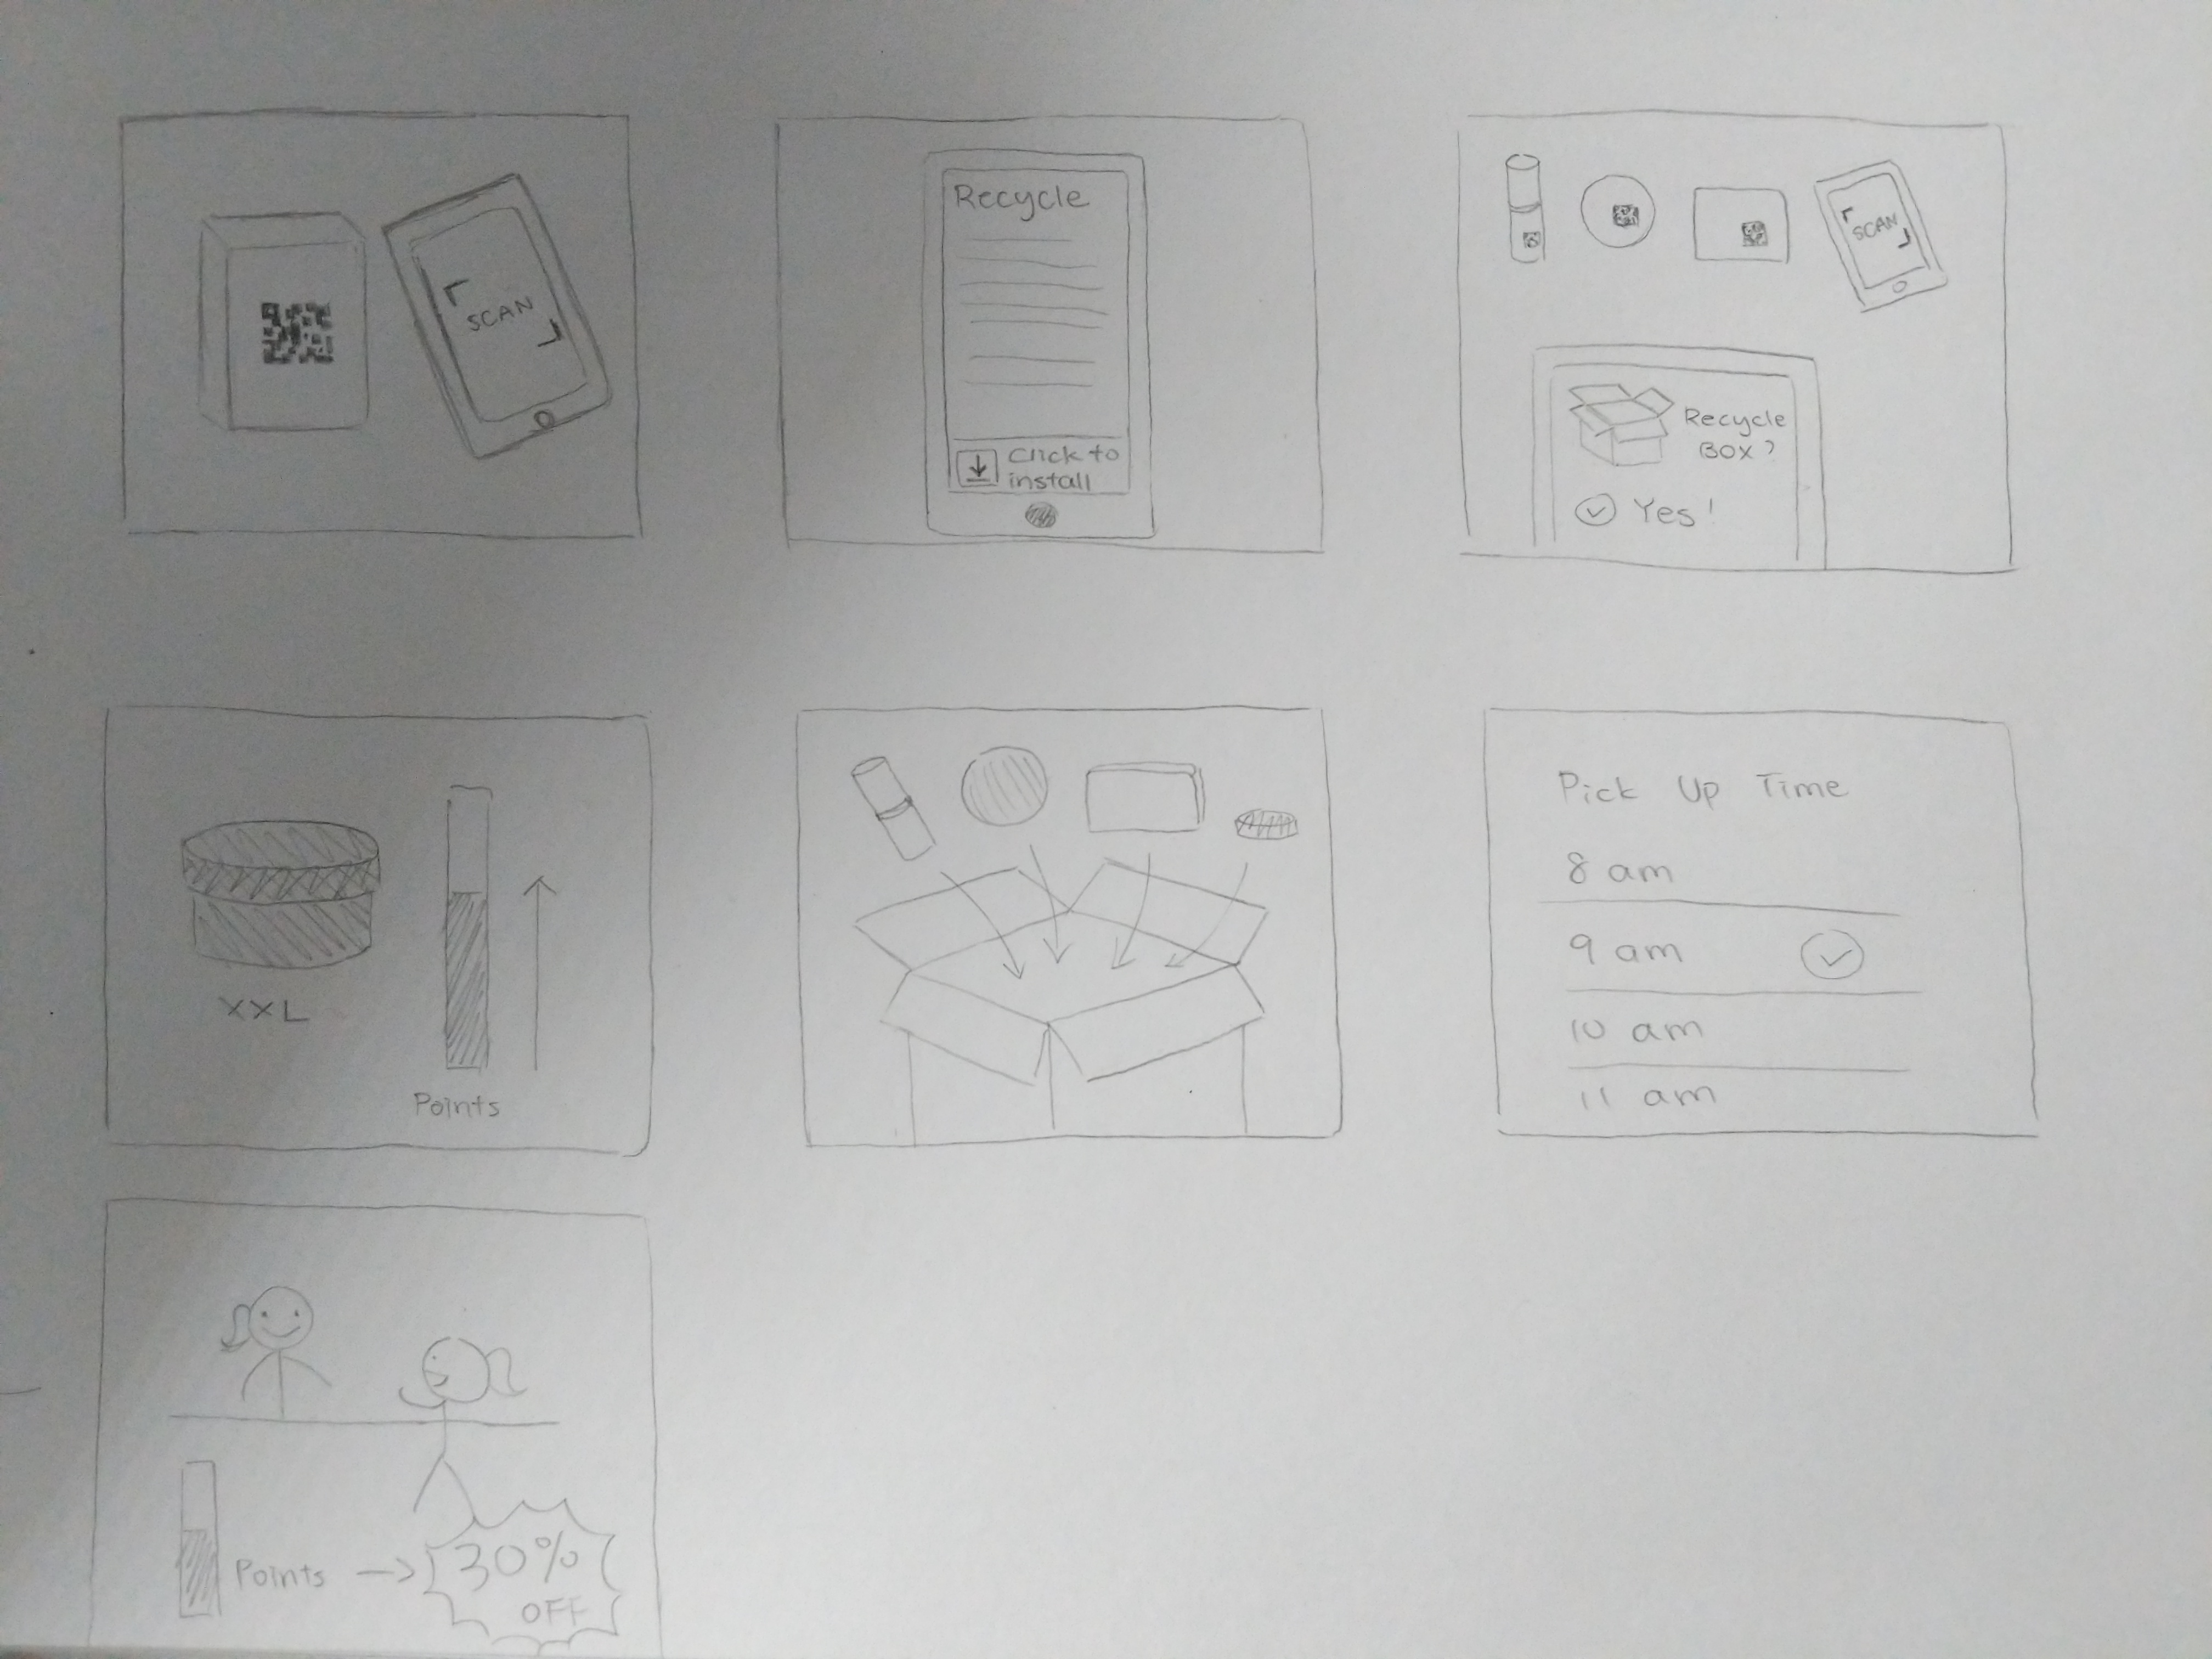 SCAN
Recycle
Click to
install
SCAN
Recycle
Box?
Yes!
XXL
Points
Pick Up Time
8 am
9 am
10 am
11 am
Points → 30%
OFF